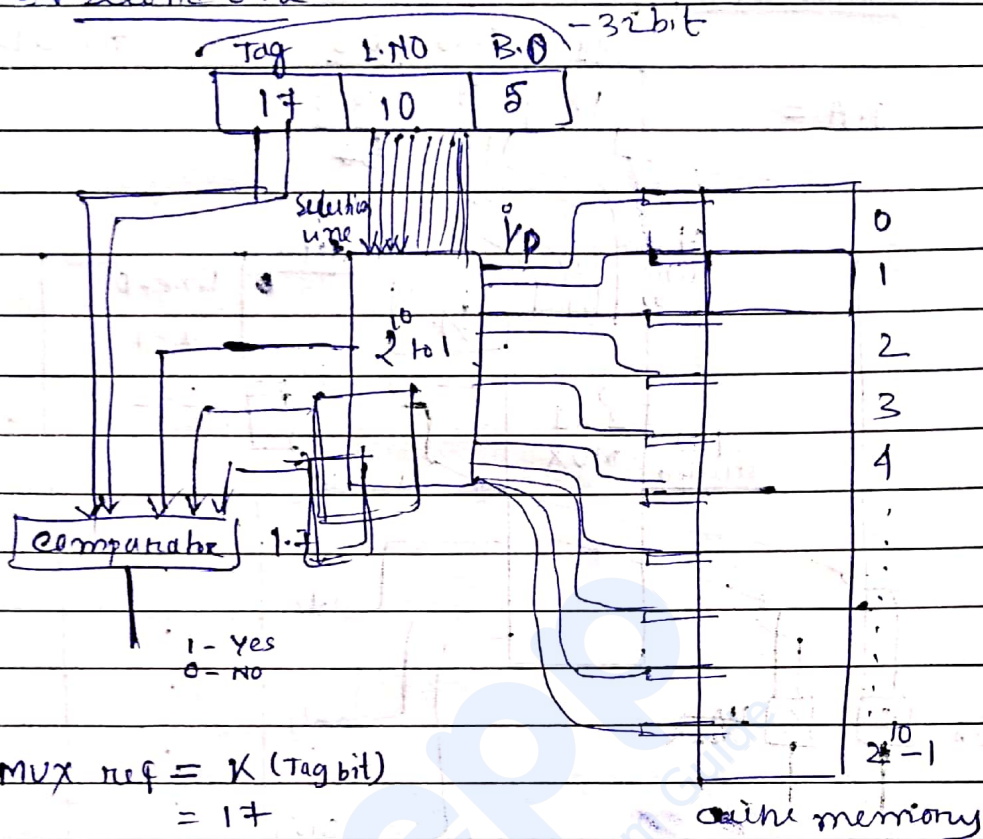 Tag L.NO B.O -32bit
17 10 5
Selection line
i/p
0
1
2^10 to 1
2
3
4
Comparator
17
1 - Yes
0 - NO
2^10-1
MUX req = K (Tag bit)
= 17
cache memory